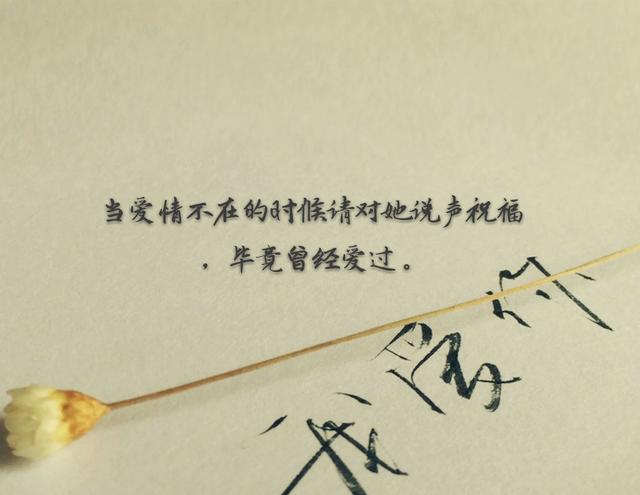 当爱情不在的时候请对她说声祝福
，毕竟曾经爱过。
我爱你